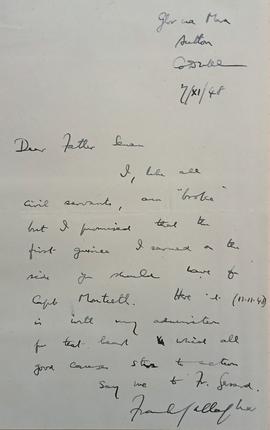 Sutton
Co Dublin
7/XI/48
Dear Father Senan
I, like all
civil servants, am "broke"
but I promised that the
first guinea I earned on the
side you should have for
Capt Monteith. Here it is. (11-11-48)
is with my admiration
for that heart which all
good causes
Say me to Fr. Gerard.
Frank Gallagher